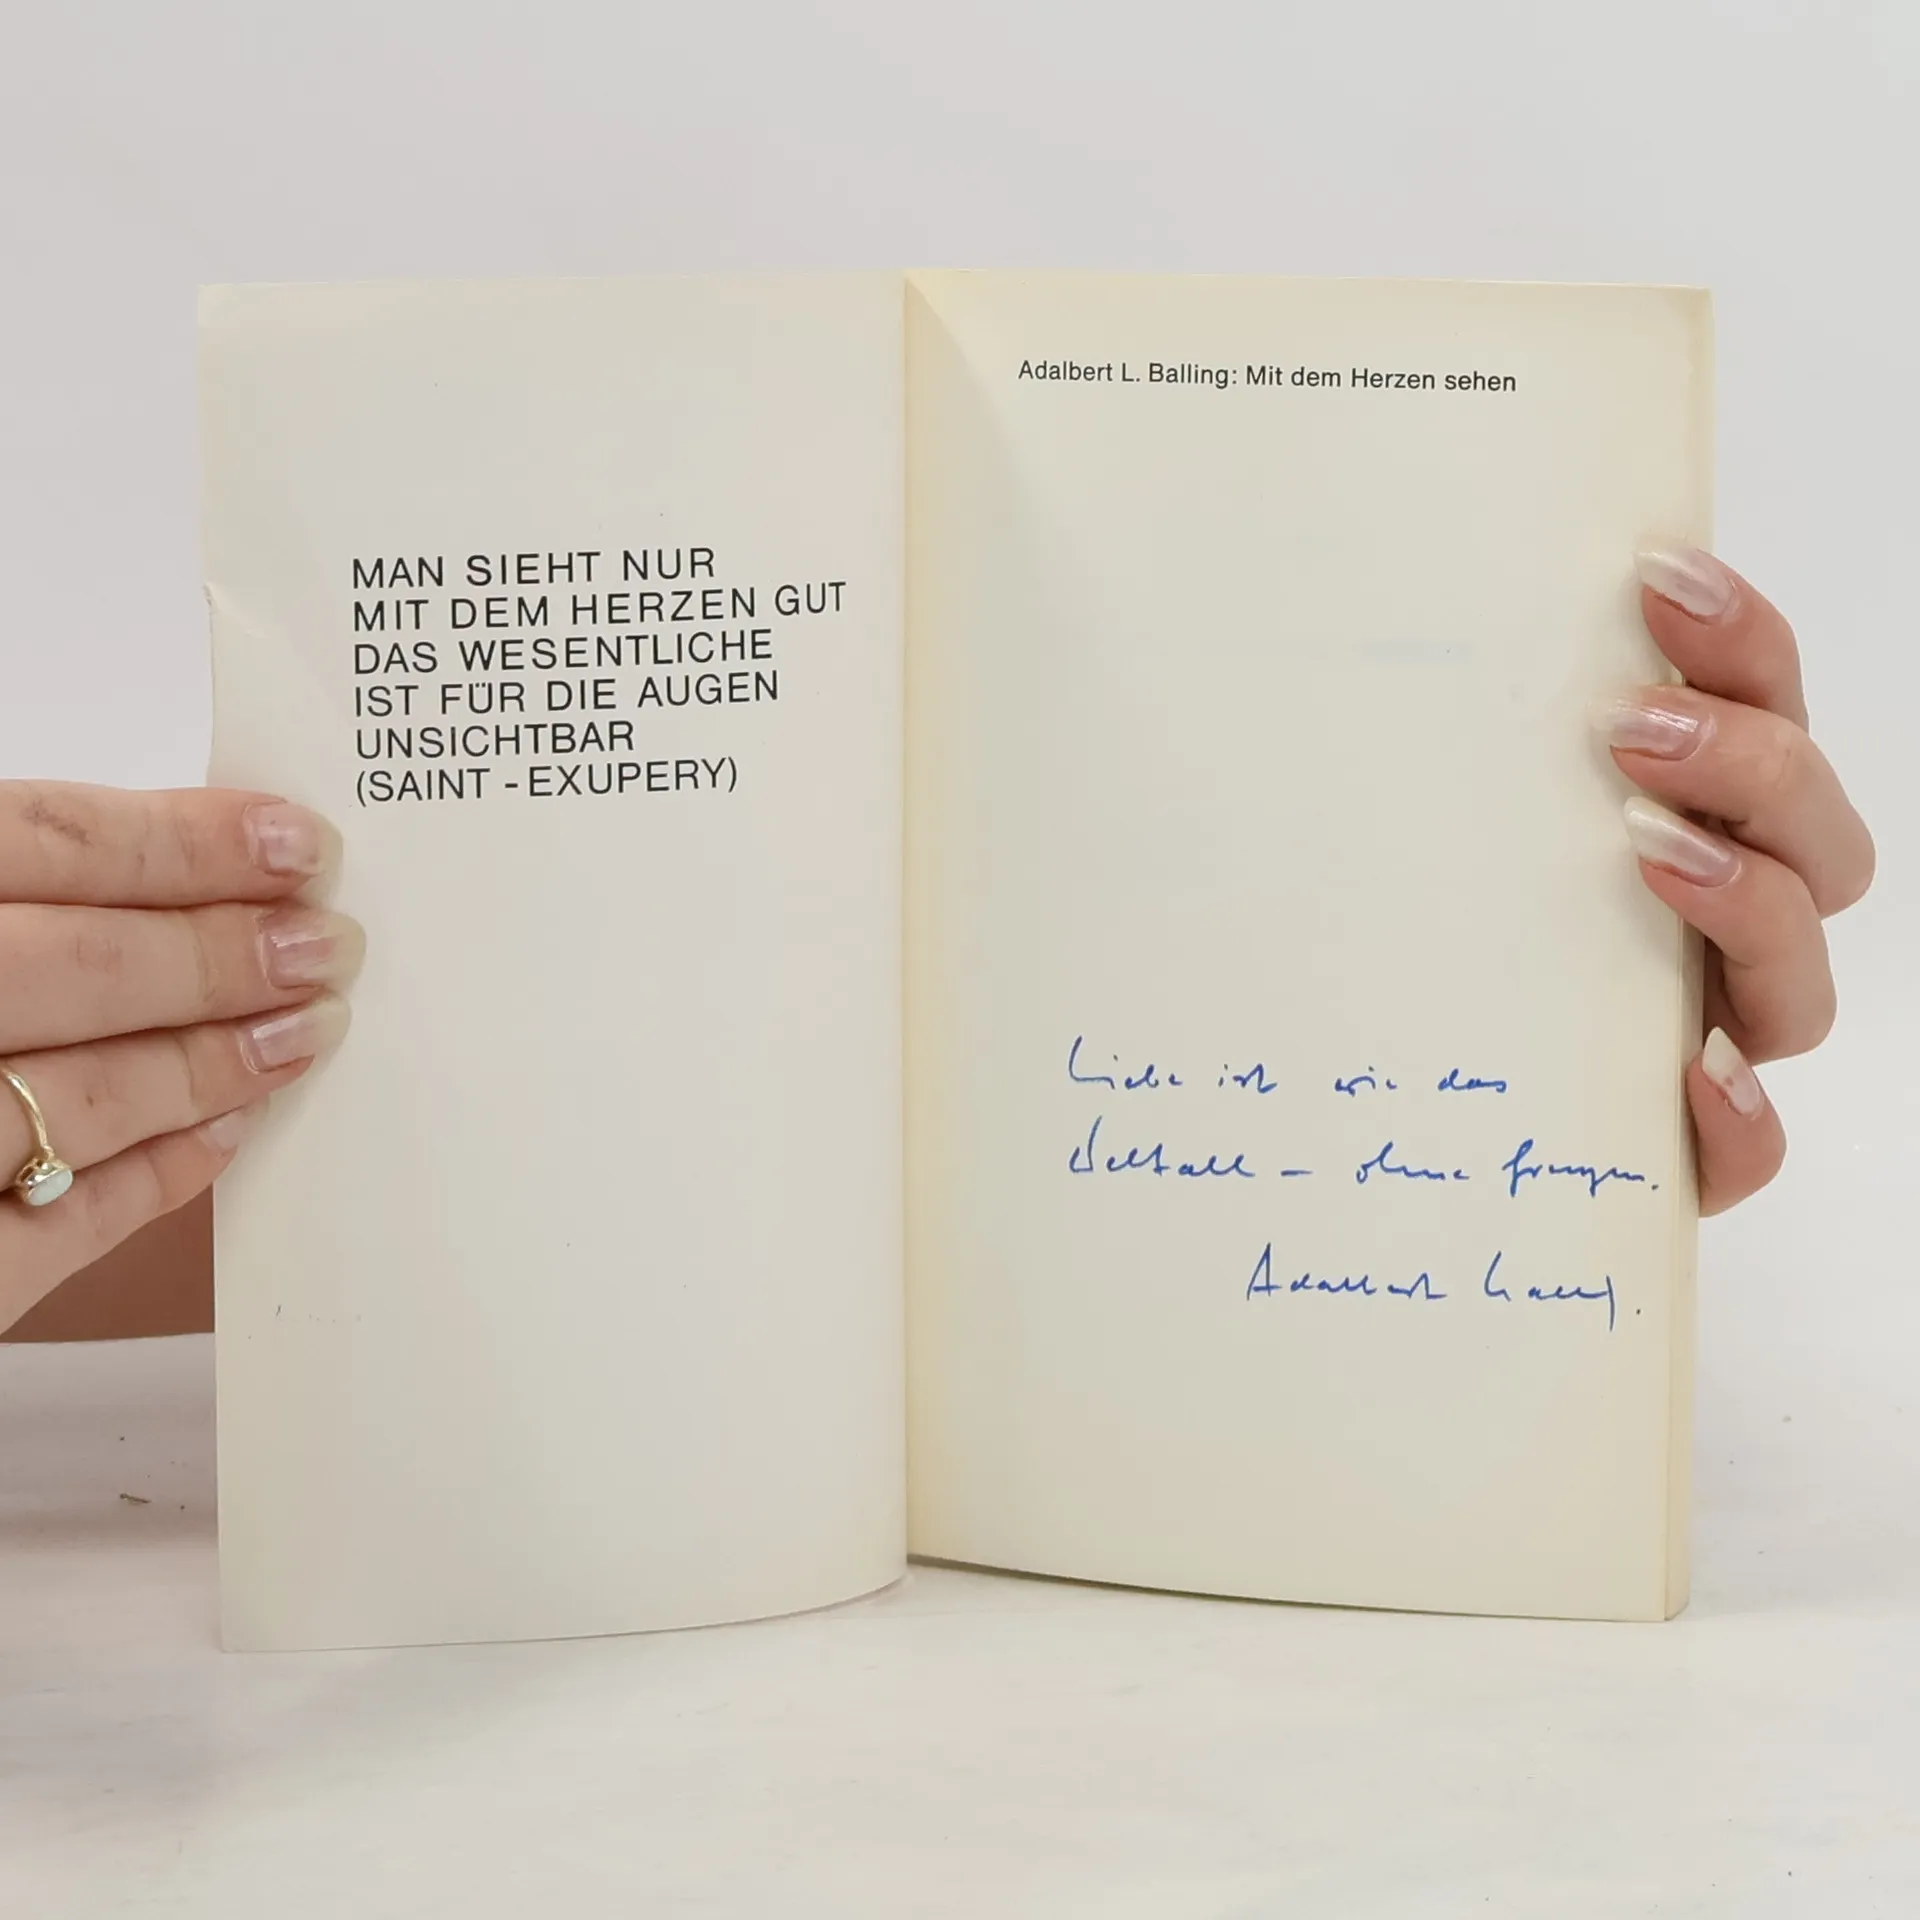 MAN SIEHT NUR
MIT DEM HERZEN GUT
DAS WESENTLICHE
IST FÜR DIE AUGEN
UNSICHTBAR
(SAINT - EXUPERY)
Adalbert L. Balling: Mit dem Herzen sehen
Liebe ist wie das
Weltall – ohne Grenzen.
Adalbert Balling.